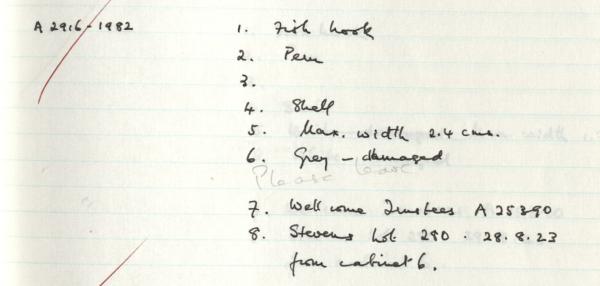 A 2916-1982 1. Fish hook
2. Peru
3.
4. Shell
5. Max. width 2.4 cms.
6. Grey - damaged
Please leave
7. Wellcome Trustees A 25390
8. Stevens Lot 280 . 28.8.23
from cabinet 6.